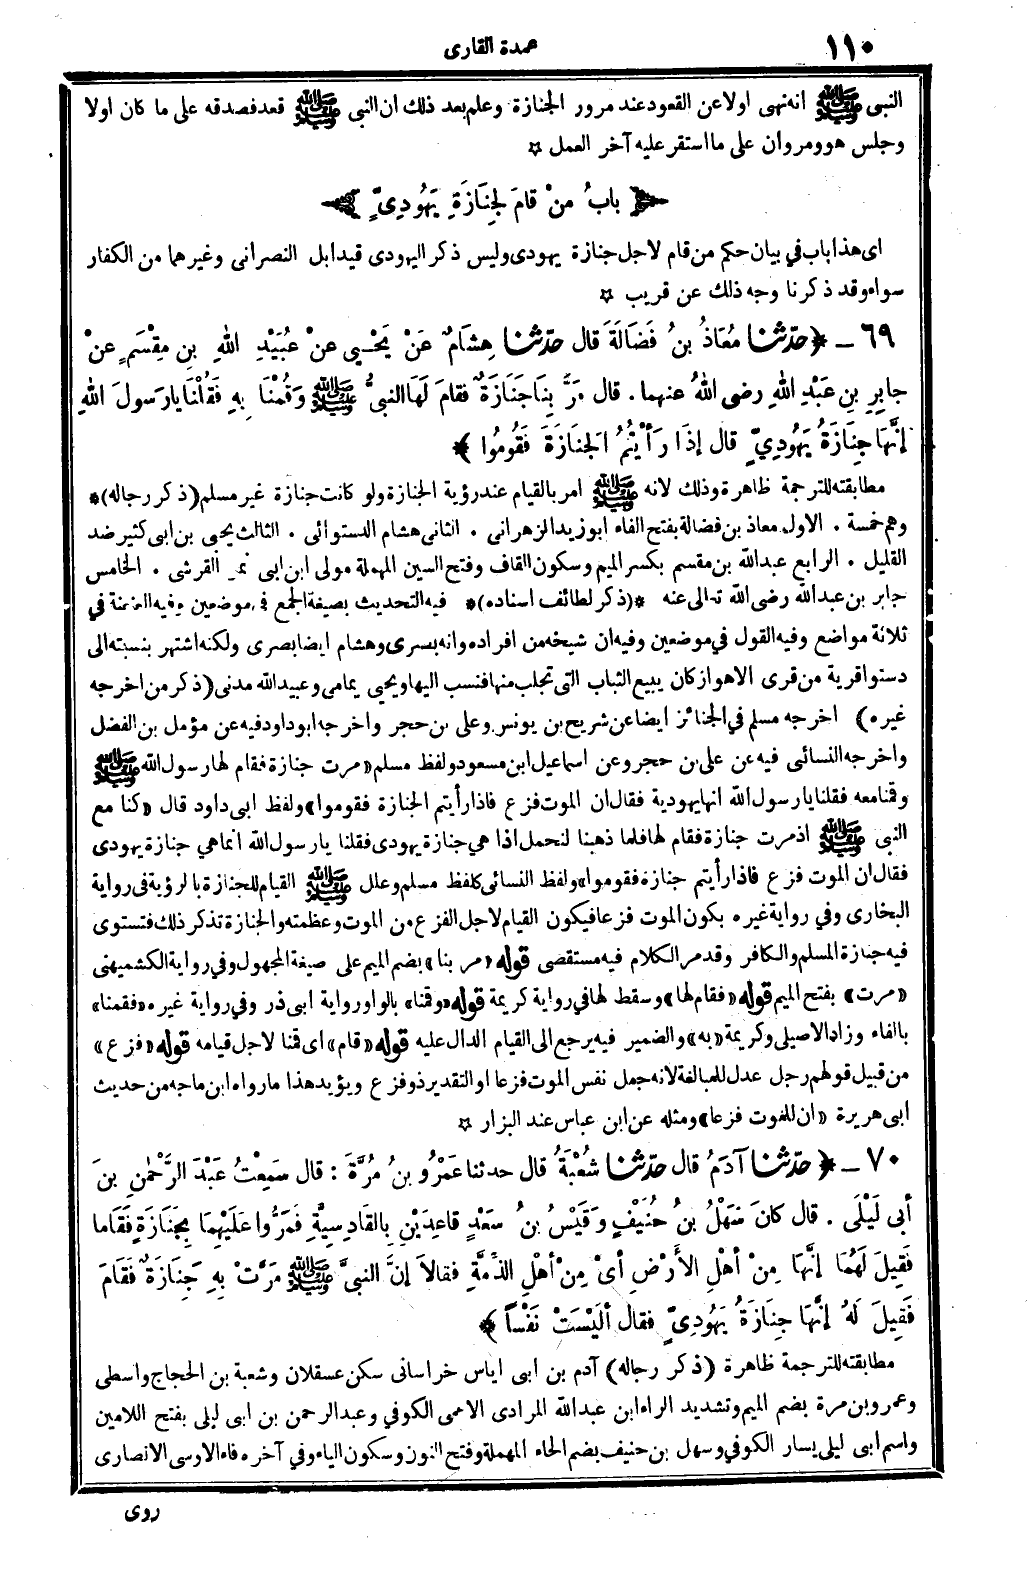 ١١٠
عمدة القارى
النبى ﷺ انه نهى اولا عن القعود عند مرور الجنازة وعلم بعد ذلك ان النبى ﷺ قعد فصدقه على ما كان اولا
وجلس هو ومروان على ما استقر عليه آخر العمل ☆
بابُ منْ قامَ لِجِنَازَةِ يَهُودِىٍّ
اى هذا باب في بيان حكم من قام لاجل جنازة يهودى وليس ذكر اليهودى قيدا بل النصرانى وغيرهما من الكفار
سواء وقد ذكرنا وجه ذلك عن قريب ☆
٦٩ ـ ﴿حدّثنا مُعَاذُ بنُ فَضَالَةَ قال حدّثنا هِشَامٌ عَنْ يَحْيى عنْ عُبَيْدِ اللهِ بنِ مِقْسَمٍ عنْ
جابِرِ بنِ عَبْدِ اللهِ رضى اللهُ عنهما . قال مَرَّ بِنَا جَنَازَةٌ فقامَ لَهَا النبىُّ ﷺ وَقُمْنَا بِهِ فَقُلْنَا يا رَسولَ اللهِ
إنَّهَا جِنَازَةُ يَهُودِىٍّ قال إذَا رَأيْتُمُ الجَنَازَةَ فَقُومُوا ﴾
مطابقته للترجمة ظاهرة وذلك لانه ﷺ امر بالقيام عند رؤية الجنازة ولو كانت جنازة غير مسلم (ذكر رجاله)*
وهم خمسة . الاول معاذ بن فضالة بفتح الفاء ابو زيد الزهرانى . الثانى هشام الدستوائى . الثالث يحيى بن ابى كثير ضد
القليل . الرابع عبدالله بن مقسم بكسر الميم وسكون القاف وفتح السين المهملة مولى ابن ابى نمر القرشى . الخامس
جابر بن عبدالله رضى الله تعالى عنه *(ذكر لطائف اسناده)* فيه التحديث بصيغة الجمع في موضعين وفيه العنعنة في
ثلاثة مواضع وفيه القول في موضعين وفيه ان شيخه من افراده وانه بسرى وهشام ايضا بصرى ولكنه اشتهر بنسبته الى
دستوا قرية من قرى الاهواز كان يبيع الثياب التى تجلب منها فنسب اليها ويحيى يمامى وعبيدالله مدنى (ذكر من اخرجه
غيره) اخرجه مسلم في الجنائز ايضا عن شريح بن يونس وعلى بن حجر واخرجه ابو داود فيه عن مؤمل بن الفضل
واخرجه النسائى فيه عن على بن حجر وعن اسماعيل ابن مسعود ولفظ مسلم «مرت جنازة فقام لها رسول الله ﷺ
وقمنا معه فقلنا يا رسول الله انها يهودية فقال ان الموت فزع فاذا رأيتم الجنازة فقوموا» ولفظ ابى داود قال «كنا مع
النبى ﷺ اذ مرت جنازة فقام لها فلما ذهبنا لنحمل اذا هي جنازة يهودى فقلنا يا رسول الله انما هي جنازة يهودى
فقال ان الموت فزع فاذا رأيتم جنازة فقوموا» ولفظ النسائى كلفظ مسلم وعلل ﷺ القيام للجنازة بالرؤية فى رواية
البخارى وفي رواية غيره بكون الموت فزعا فيكون القيام لاجل الفزع من الموت وعظمته والجنازة تذكر ذلك فتستوى
فيه جنازة المسلم والكافر وقد مر الكلام فيه مستقصى قوله «مر بنا» بضم الميم على صيغة المجهول وفي رواية الكشميهنى
«مرت» بفتح الميم قوله «فقام لها» وسقط لها في رواية كريمة قوله «وقمنا» بالواو رواية ابى ذر وفي رواية غيره «فقمنا»
بالفاء وزاد الاصيلى وكريمة «به» والضمير فيه يرجع الى القيام الدال عليه قوله «قام» اى قمنا لاجل قيامه قوله «فزع»
من قبيل قولهم رجل عدل للمبالغة لانه جعل نفس الموت فزعا او التقدير ذو فزع ويؤيد هذا ما رواه ابن ماجه من حديث
ابى هريرة «ان للموت فزعا» ومثله عن ابن عباس عند البزار ☆
٧٠ ـ ﴿حدّثنا آدَمُ قال حدّثنا شُعْبَةُ قال حدثنا عَمْرُو بنُ مُرَّةَ : قال سَمِعْتُ عَبْدَ الرَّحْمٰنِ بنَ
أبى لَيْلَى . قال كانَ سَهْلُ بنُ حُنَيْفٍ وَقَيْسُ بنُ سَعْدٍ قاعِدَيْنِ بالقَادِسِيَّةِ فَمَرُّوا عَلَيْهِمَا بِجَنَازَةٍ فَقَاما
فَقِيلَ لَهُمَا إنَّهَا مِنْ أهْلِ الأَرْضِ أىْ مِنْ أهْلِ الذِّمَّةِ فقالاَ إنَّ النبىَّ ﷺ مَرَّتْ بِهِ جَنَازَةٌ فَقَامَ
فَقِيلَ لَهُ إنَّهَا جِنَازَةُ يَهُودِىٍّ فقال ألَيْسَتْ نَفْساً ﴾
مطابقته للترجمة ظاهرة (ذكر رجاله) آدم بن ابى اياس خراسانى سكن عسقلان وشعبة بن الحجاج واسطى
وعمرو بن مرة بضم الميم وتشديد الراء ابن عبدالله المرادى الاعمى الكوفي وعبد الرحمن بن ابى ليلى بفتح اللامين
واسم ابى ليلى يسار الكوفي وسهل بن حنيف بضم الحاء المهملة وفتح النون وسكون الياء وفي آخره فاء الاوسى الانصارى
روى